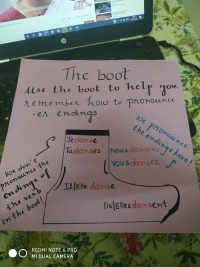 The boot
Use the boot to help you
remember how to pronounce
-er endings
We don't
pronounce the
endings of
the verb
in the boot!
Je danse
Tu danses
Il/Elle danse
Ils/Elles dansent
Nous dansons
Vous dansez
We pronounce
the endings here!
REDMI NOTE 6 PRO
MI DUAL CAMERA